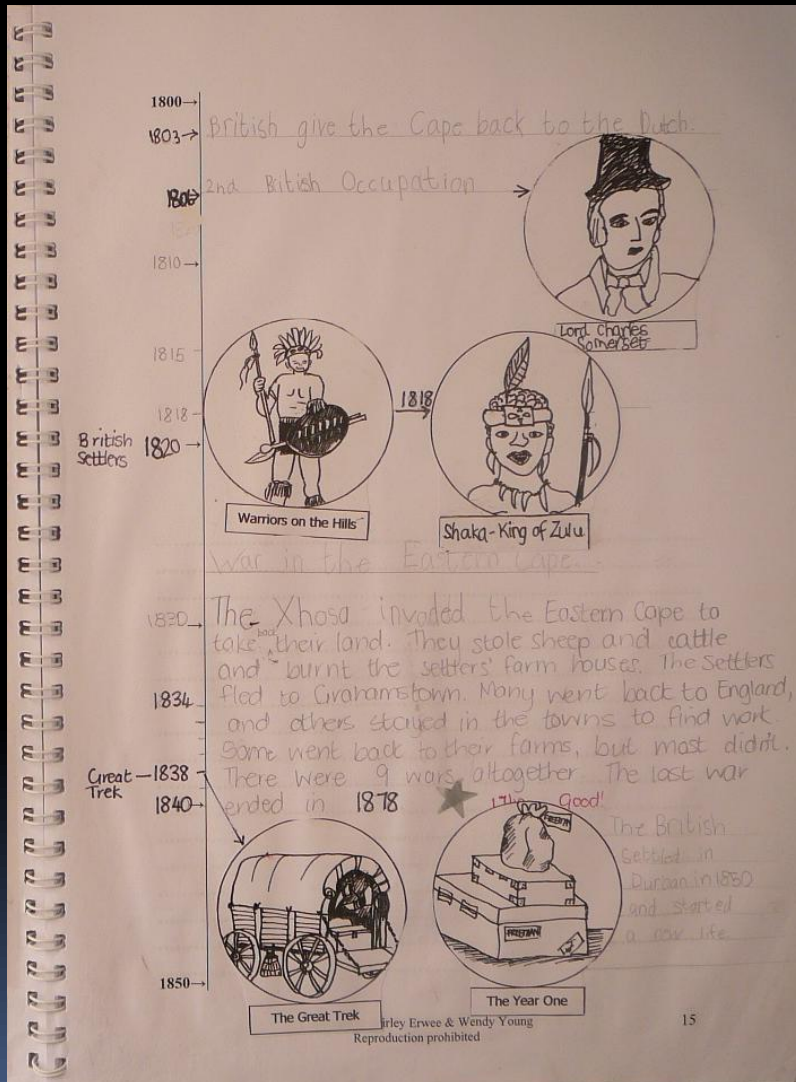 1800→
1803→ British give the Cape back to the Dutch.
1806→ 2nd British Occupation →
Lord Charles
Somerset
1810→
1815
1818
1818
British
Settlers
1820→
Warriors on the Hills
Shaka-King of Zulu
War in the Eastern Cape.
1830→ The Xhosa invaded the Eastern Cape to
take back their land. They stole sheep and cattle
and burnt the settlers' farm houses. The Settlers
1834 fled to Grahamstown. Many went back to England,
and others stayed in the towns to find work.
Some went back to their farms, but most didn't.
Great Trek
1838
There were 9 wars altogether. The last war
1840→ ended in 1878
Good!
The British
Settled in
Durban in 1850
and started
a new life
1850→
The Great Trek
The Year One
irley Erwee & Wendy Young
Reproduction prohibited
15